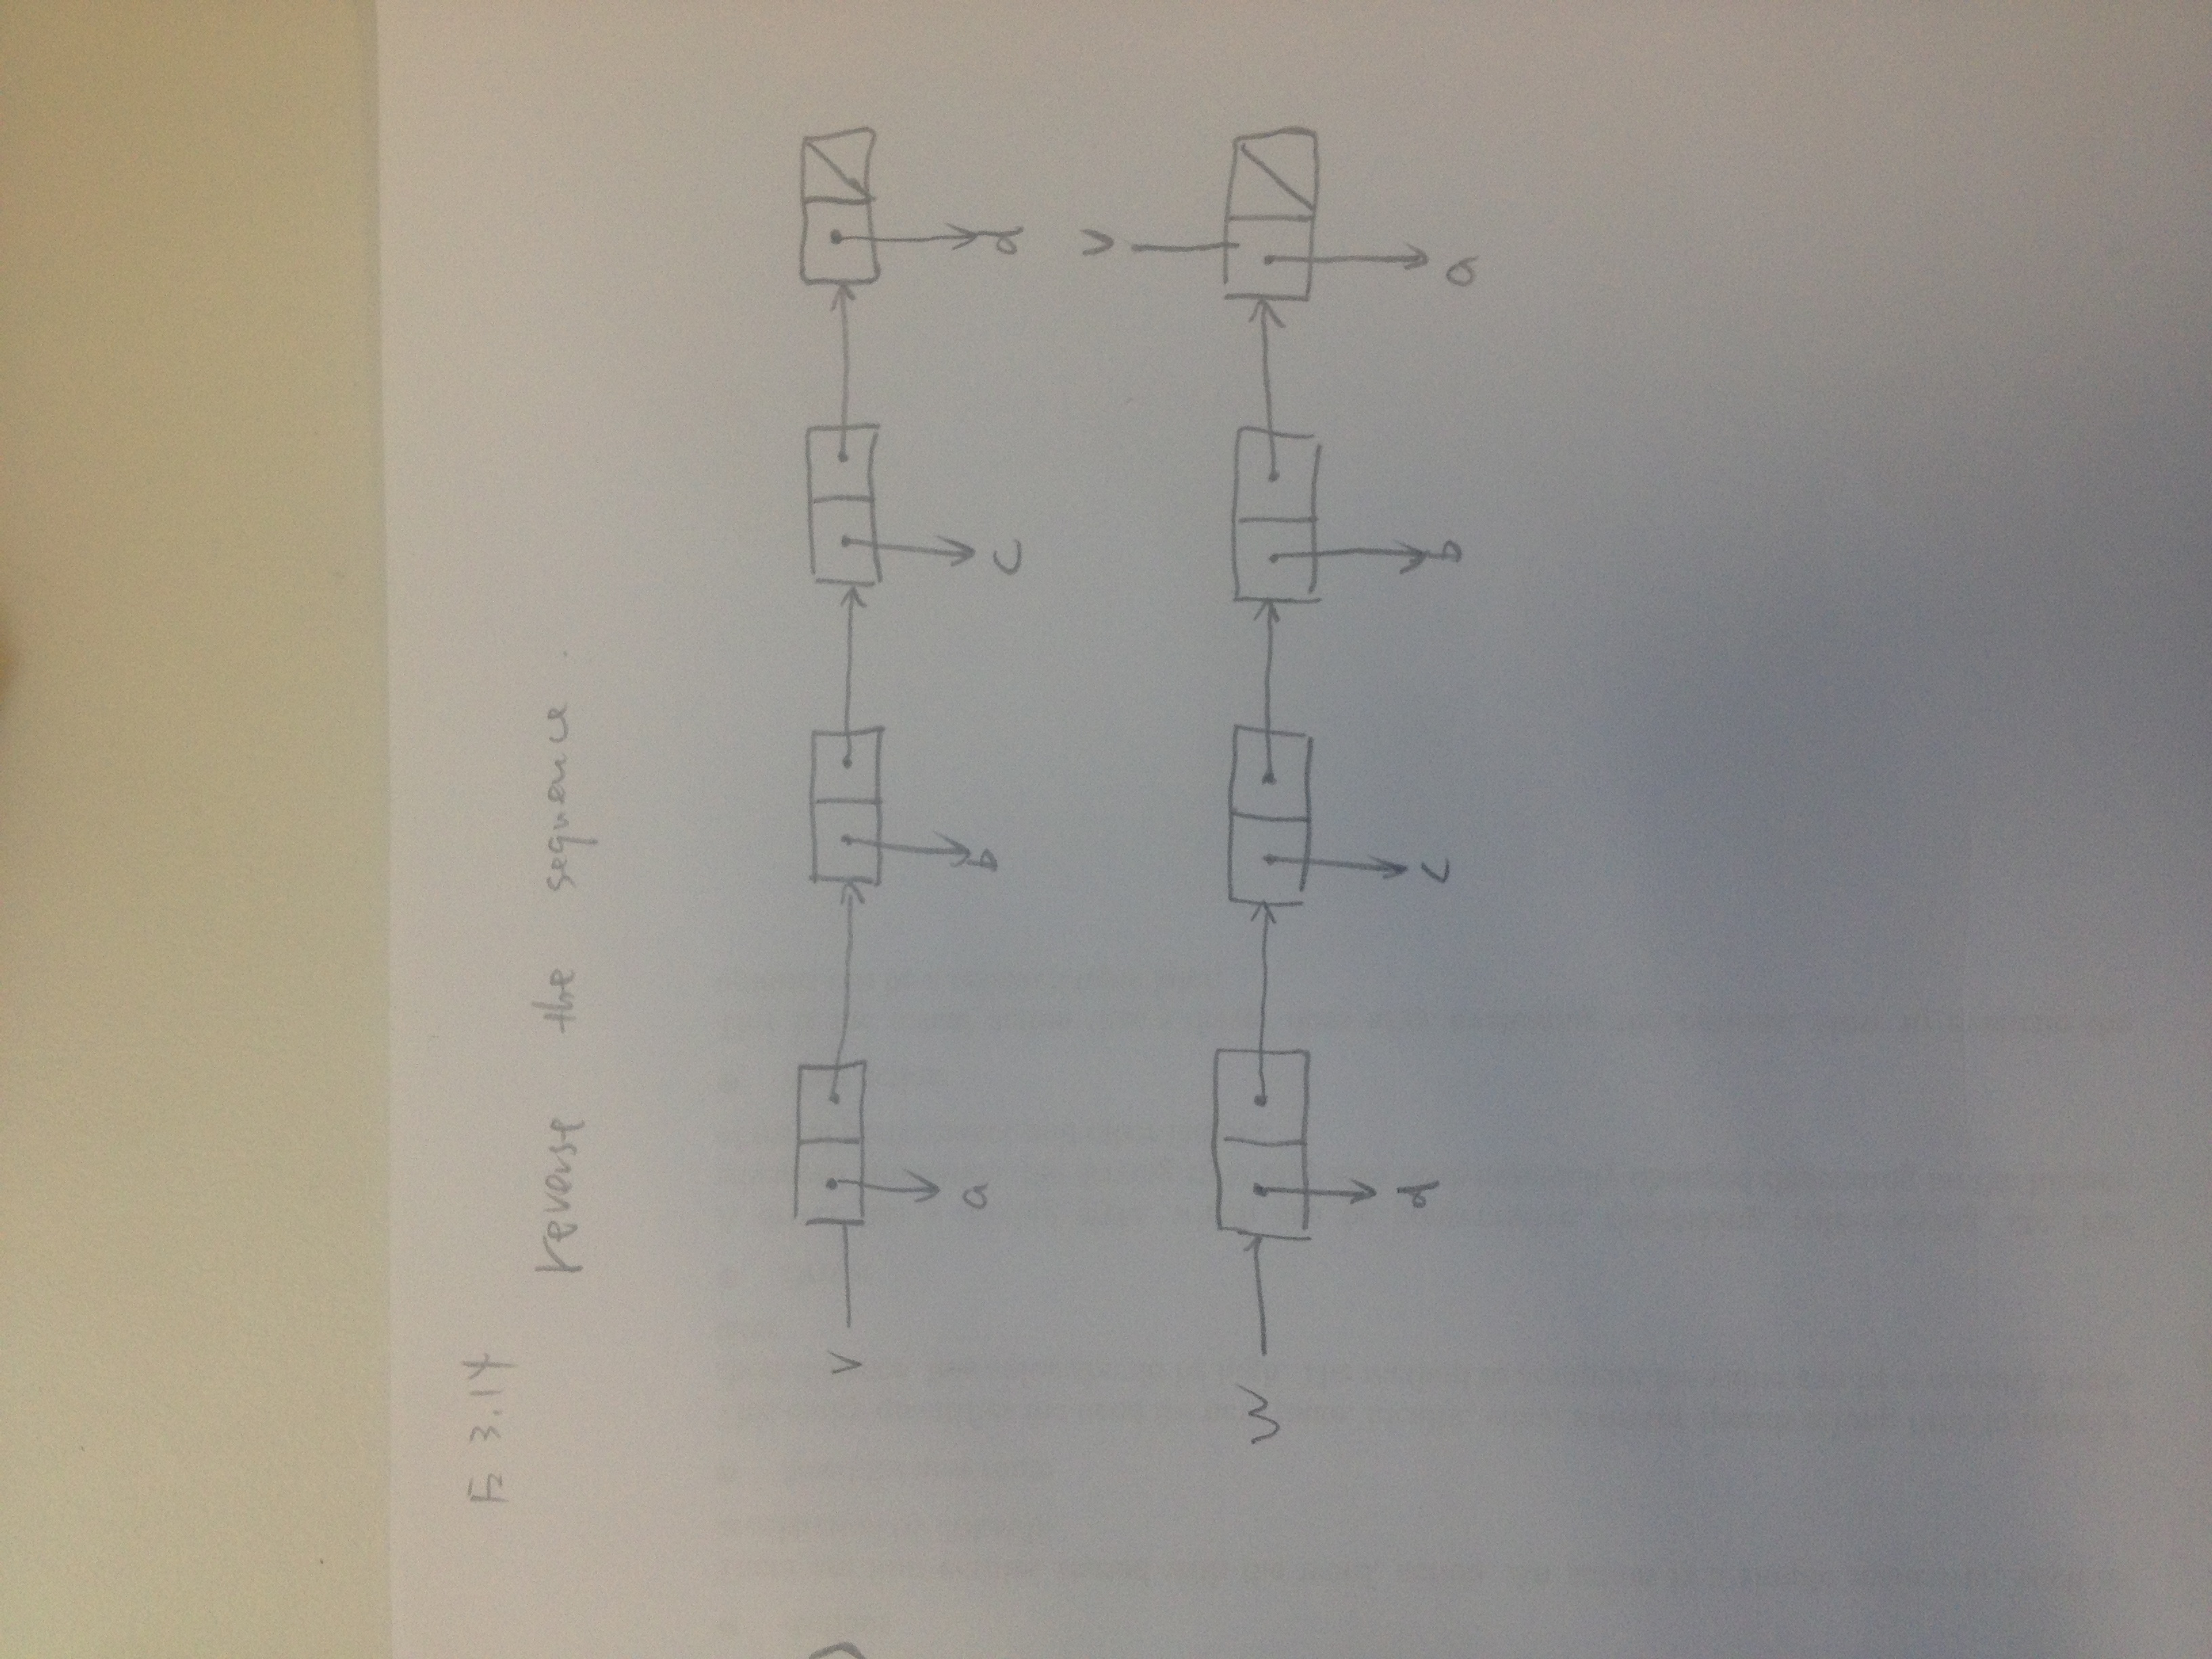 E 3.14
reverse the sequence.
v
a b c d
v
w
d c b a